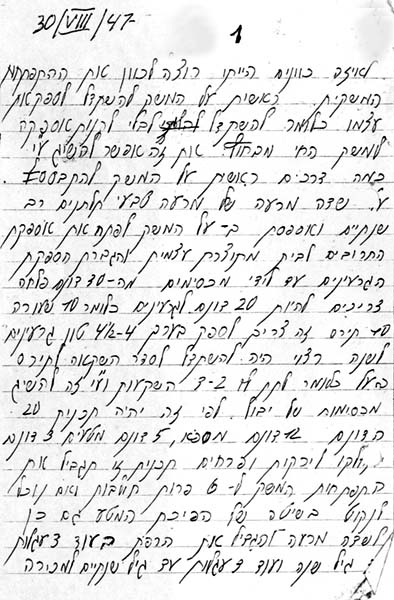 30/VIII/47-
1
לאיזה כוונים הייתי רוצה לכוון את ההתפתחות
המשקית. ראשית על המשק להשתדל לספק את
עצמו כלומר להשתדל לבלי לקנות אספקה
למשק החי מבחוץ. את זה אפשר להשיג ע"י
כמה דרכים ראשית על המשק להתבסס
ע. שדה מרעה של מרעה טבעי תלתנים רב
שנתיים ואספסת ב- על המשק לפתח את אספקת
החרובים לבית מתוצרת עצמית והגברת הספקת
הגרעינים עד לידי מכסימום מה-30 דונם פלחה
צריכים להיות 20 דונם לגרעינים כלומר 10 שעורה
10 תירס זה צריך לספק בערך 4-4½ טון גרעינים
לשנה רצוי היה להשתדל לסדר השקאה לתירס
בעל כלומר לתת לו 2-3 השקעות וע"י זה להשיג
מכסימום של יבול. לפי זה יהיה תכנית 20
הדונם 12 דונם מספוא, 5 דונם מטעים 3 דונם
חלקו לירקות ופרחים תכנית זו תגביל את
התפתחות המשק ל-6 פרות חולבות ואם נוכל
לנקוט בשיטה של הפיכת המטע גם כן
לשדה מרעה להגדיל את הרפת בעוד 2 עגלות
גיל שנה ועוד 2 עגלות עד גיל שנתיים למכירה